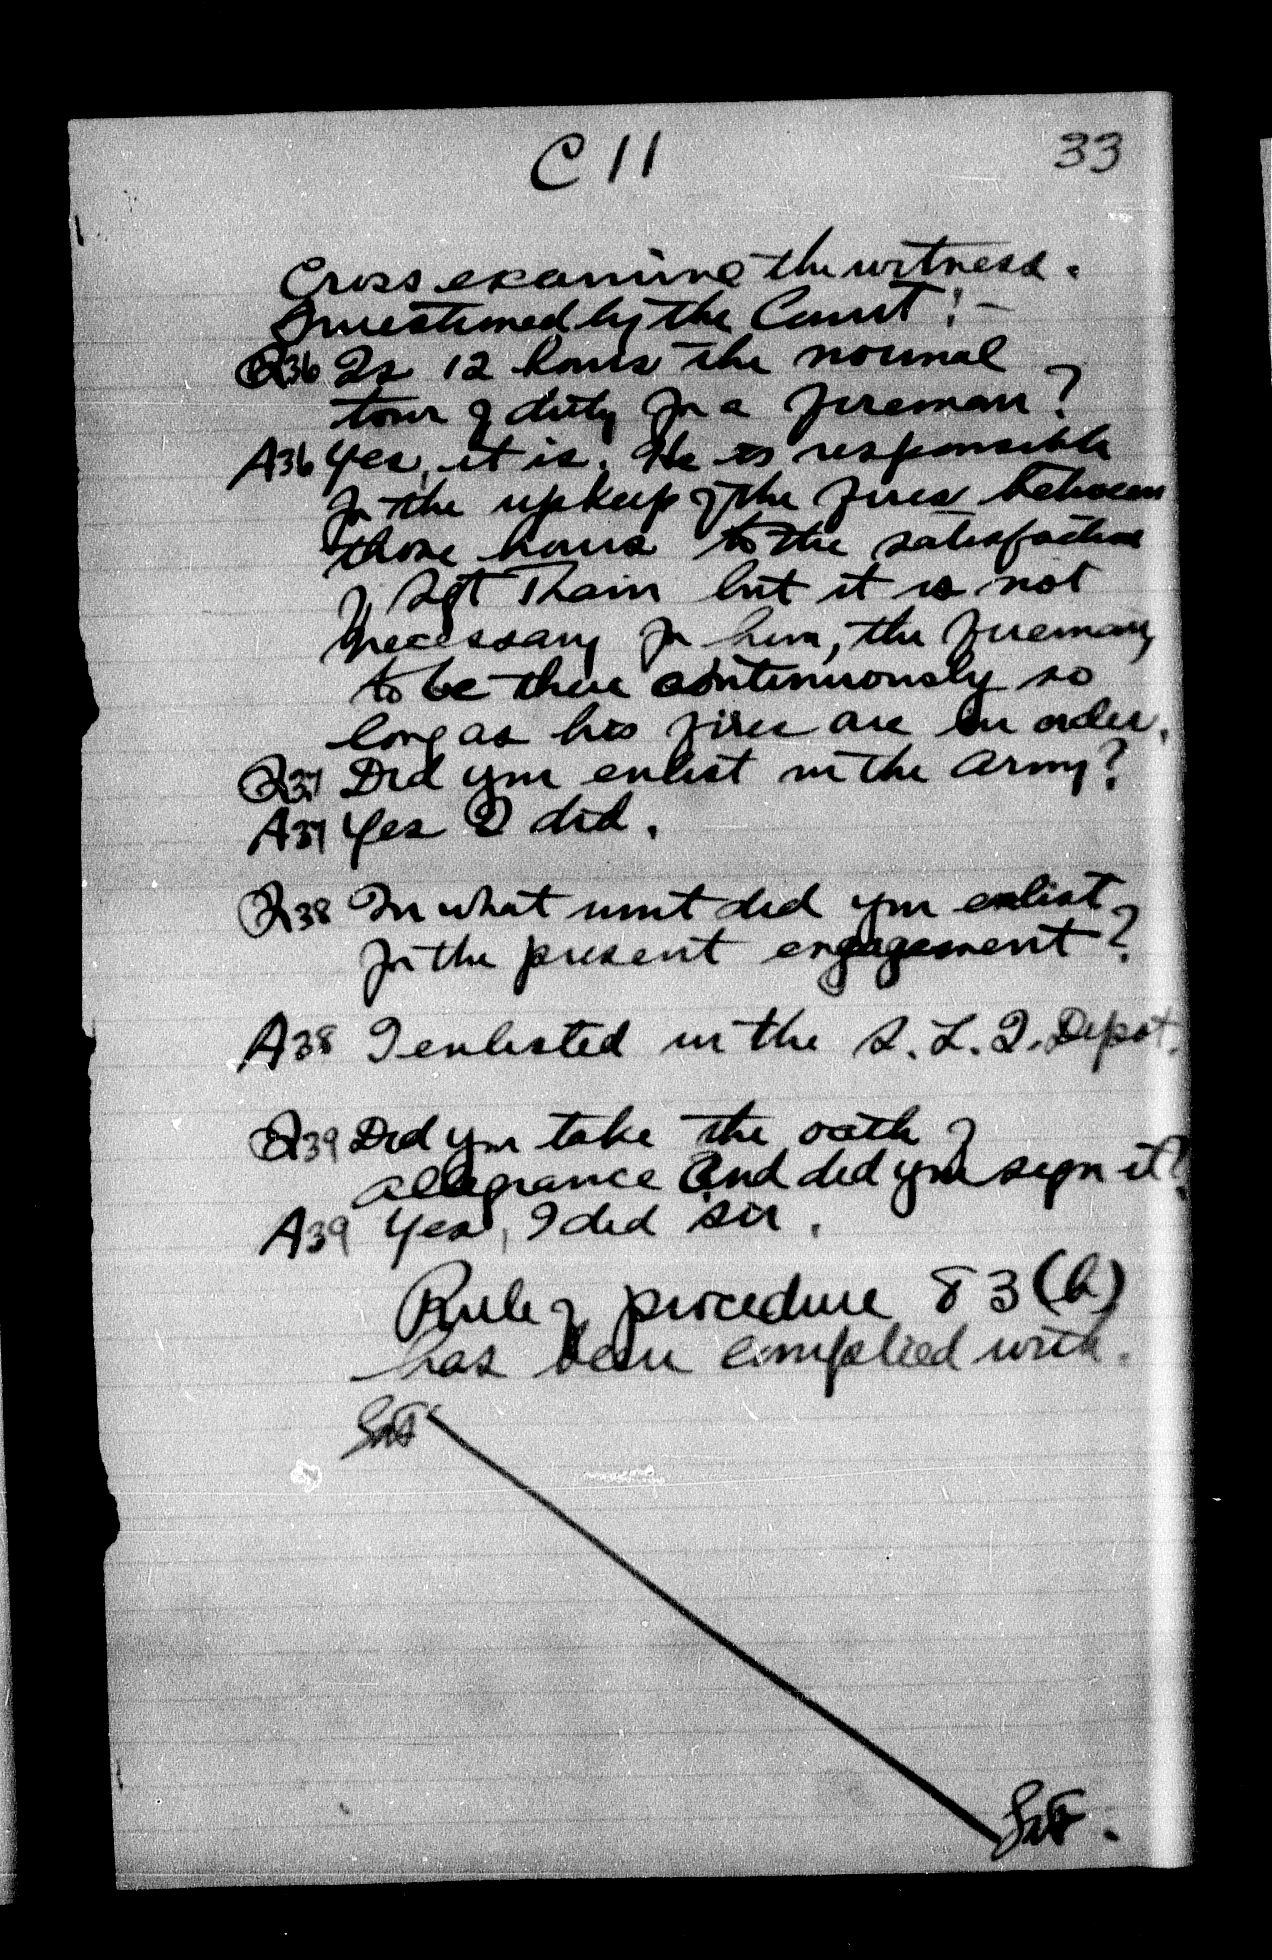 C 11
33
Cross examine the witness.
Questioned by the Court: -
Q36 Is 12 hours the normal
tour of duty for a fireman?
A36 Yes, it is. He is responsible
for the upkeep of the fires between
those hours to the satisfaction
of Sgt Thain but it is not
necessary for him, the fireman,
to be there continuously so
long as his fires are in order.
Q37 Did you enlist in the army?
A37 Yes I did.
Q38 In what unit did you enlist
for the present engagement?
A38 I enlisted in the S. L. I. Depot.
Q39 Did you take the oath of
allegiance and did you sign it?
A39 Yes, I did sir.
Rule of procedure 83 (b)
has been complied with.